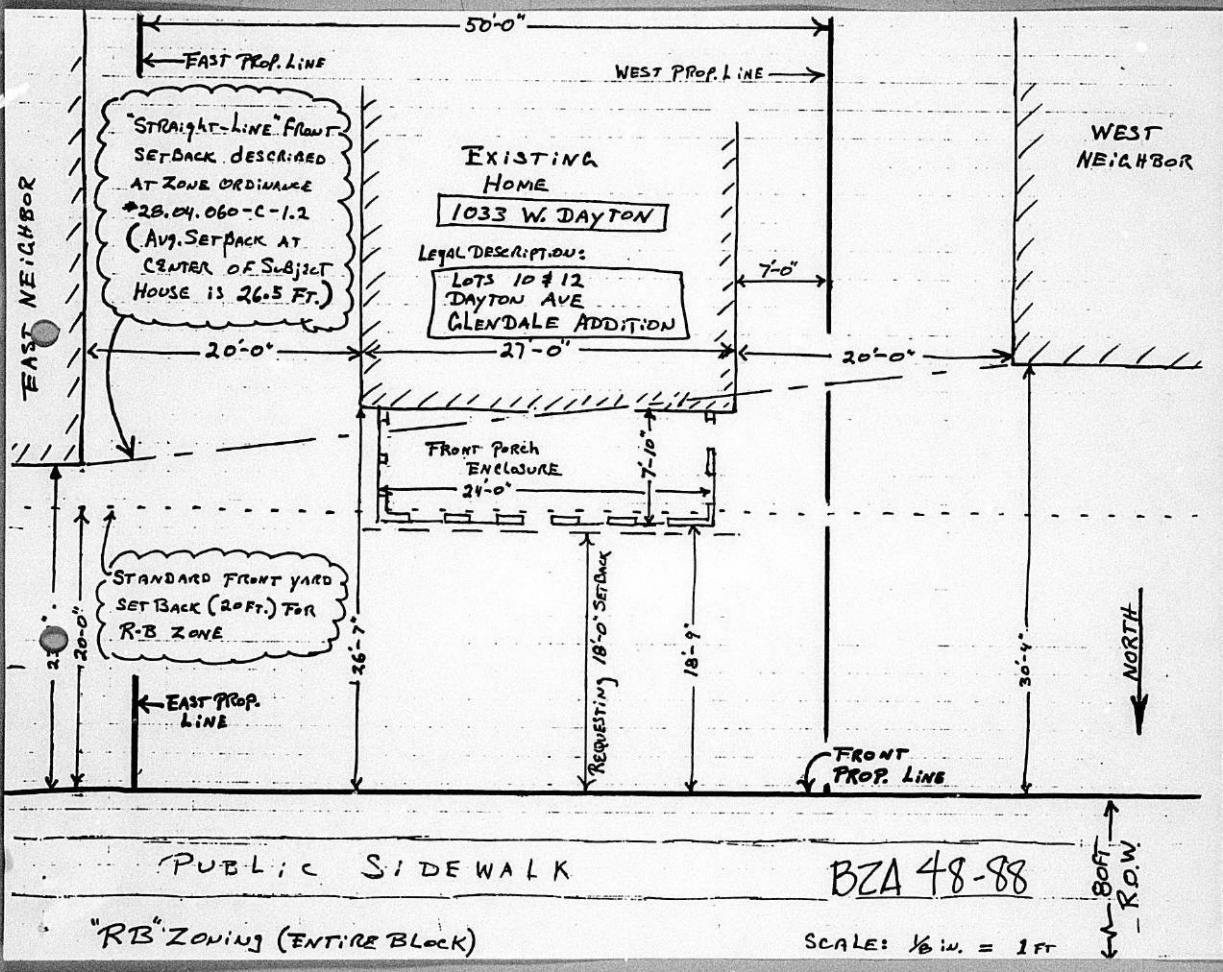 50'-0"
EAST PROP. LINE
WEST PROP. LINE
"STRAIGHT-LINE" FRONT
SETBACK DESCRIBED
AT ZONE ORDINANCE
#28.04.060-C-1.2
(AVG. SETBACK AT
CENTER OF SUBJECT
HOUSE IS 26.5 FT.)
EXISTING
HOME
1033 W. DAYTON
LEGAL DESCRIPTION:
LOTS 10 & 12
DAYTON AVE
GLENDALE ADDITION
WEST
NEIGHBOR
EAST NEIGHBOR
7'-0"
20'-0"
27'-0"
20'-0"
FRONT PORCH
ENCLOSURE
24'-0"
7'-10"
STANDARD FRONT YARD
SETBACK (20 FT.) FOR
R-B ZONE
20'-0"
26'-7"
REQUESTING 18'-0" SETBACK
18'-9"
30'-4"
NORTH
EAST PROP.
LINE
FRONT
PROP. LINE
PUBLIC SIDEWALK
BZA 48-88
80FT
R.O.W.
"RB" ZONING (ENTIRE BLOCK)
SCALE: 1/8 IN. = 1 FT